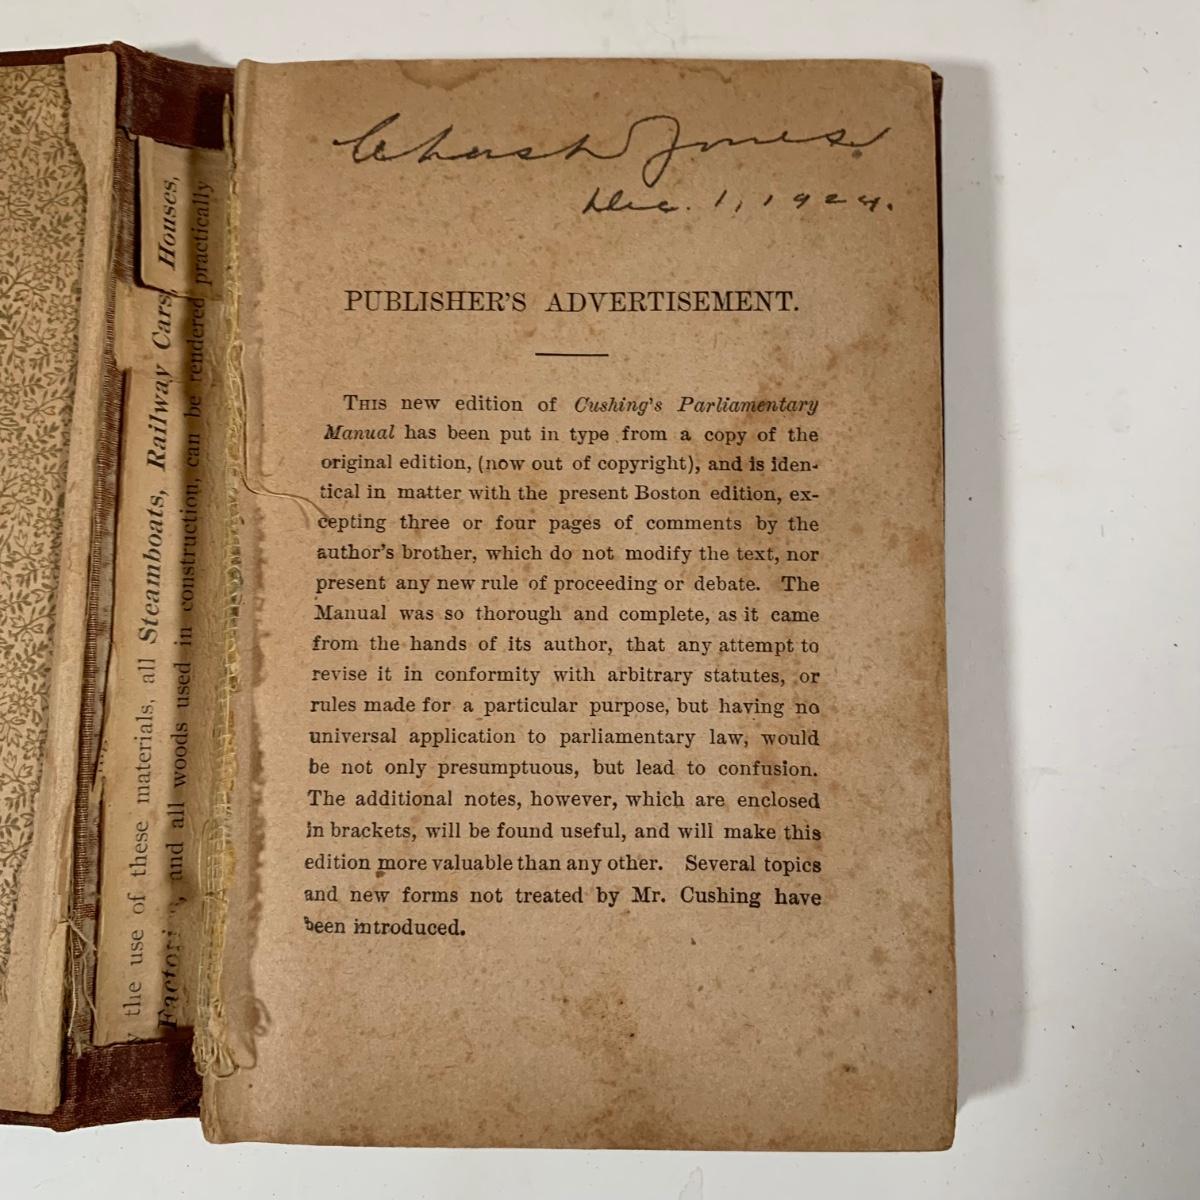 Chas H Jones.
Dec. 1, 1924.
PUBLISHER'S ADVERTISEMENT.
THIS new edition of Cushing's Parliamentary
Manual has been put in type from a copy of the
original edition, (now out of copyright), and is iden-
tical in matter with the present Boston edition, ex-
cepting three or four pages of comments by the
author's brother, which do not modify the text, nor
present any new rule of proceeding or debate. The
Manual was so thorough and complete, as it came
from the hands of its author, that any attempt to
revise it in conformity with arbitrary statutes, or
rules made for a particular purpose, but having no
universal application to parliamentary law, would
be not only presumptuous, but lead to confusion.
The additional notes, however, which are enclosed
in brackets, will be found useful, and will make this
edition more valuable than any other. Several topics
and new forms not treated by Mr. Cushing have
been introduced.
the use of these materials, all Steamboats, Railway Cars, Houses,
and all woods used in construction, can be rendered practically